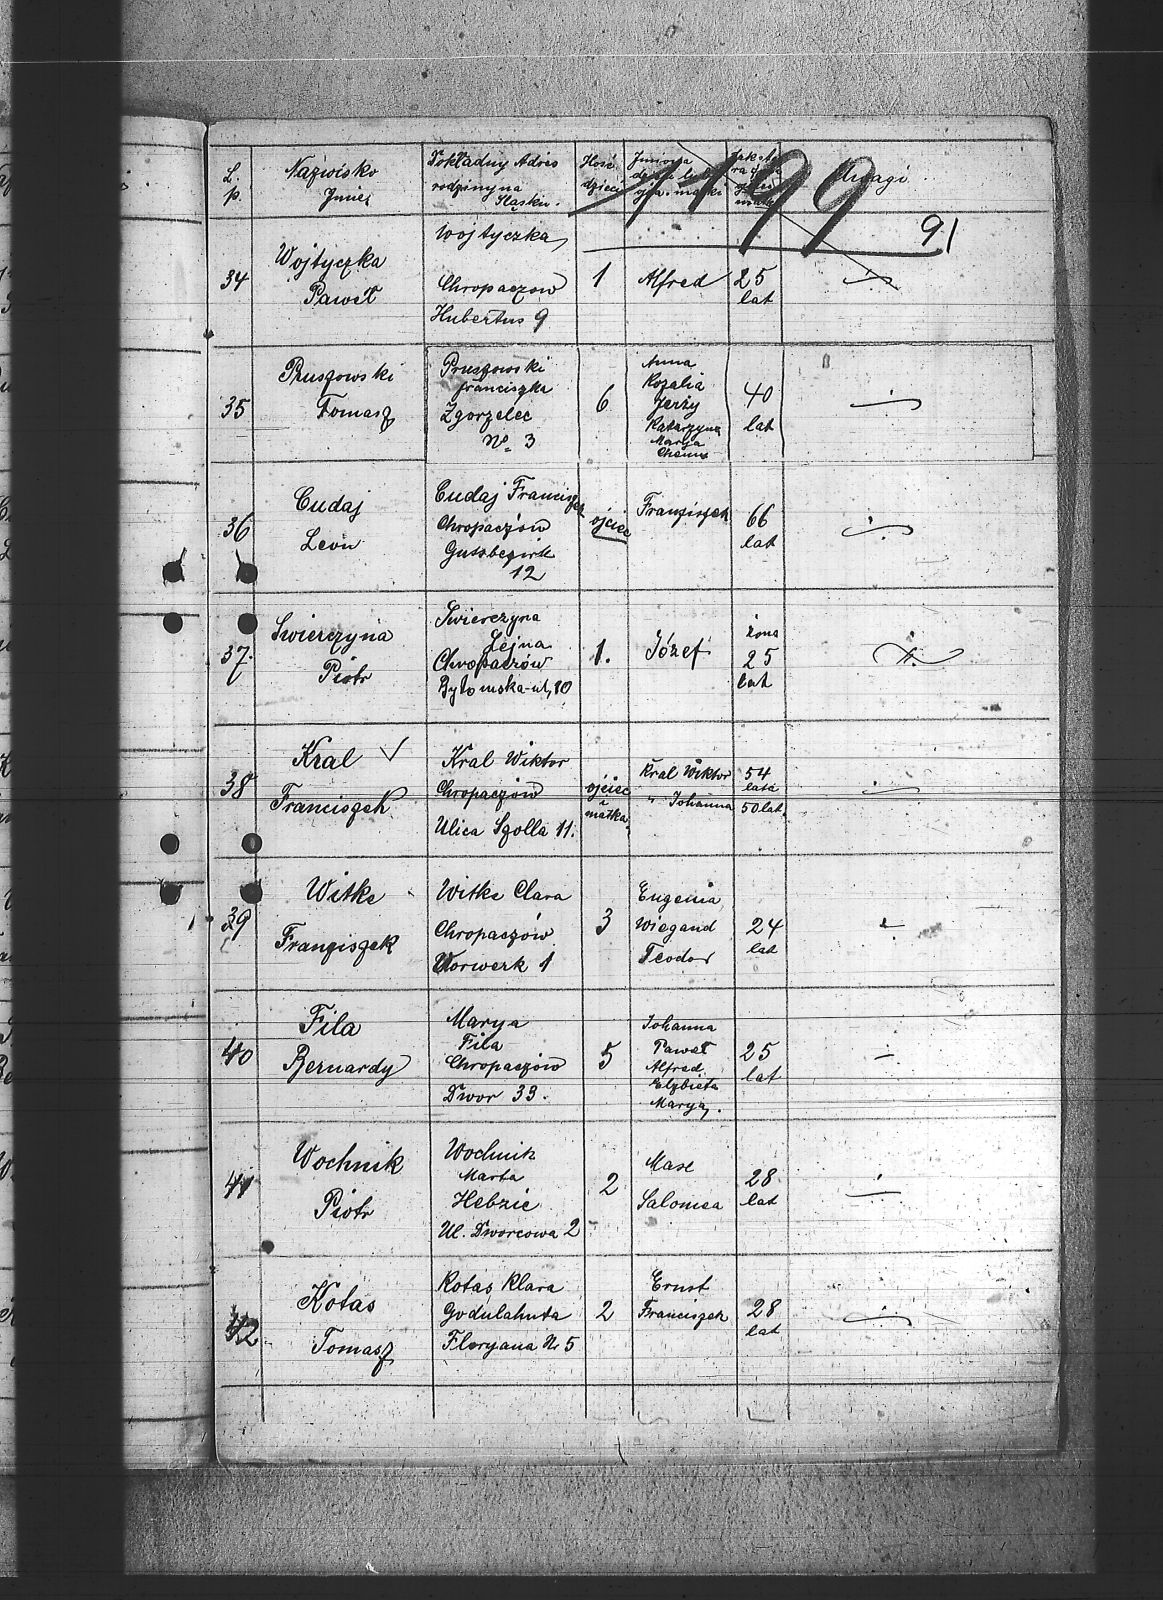 L. p.
Nazwisko
Imię
Dokładny Adres
rodziny na
Śląsku.
Ilość
dzieci
Imiona
Uwagi
199
91
34
Wojtyczka
Paweł
Wojtyczka
Chropaczow
Hubertus 9
1
Alfred
25
lat
35
Pruszowski
Tomasz
Pruszowski
Franciszka
Zgorzelec
No 3
6
Anna
Rozalia
Jerzy
Katarzyna
Marya
40
lat
36
Cudaj
Leon
Cudaj Franciszek
Chropaczów
Gutsbezirk
12
ojciec
Franziszek
66
lat
37.
Swierczyna
Piotr
Swierczyna
Chropaczów
Bytomska-ul, 10
1.
Józef
żona
25
lat
38
Kral
Franciszek
Kral Wiktor
Chropaczów
Ulica Szolla 11.
ojciec
i
matka
Kral Wiktor
" Johanna
54
lata
50 lat
39
Witke
Franziszek
Witke Clara
Chropaczów
Vorwerk 1
3
Eugenia
Wiegand
Teodor
24
lat
40
Fila
Bernardy
Marya
Fila
Chropaczów
Dwor 33.
5
Johanna
Paweł
Alfred
Elzbieta
Marya.
25
lat
41
Wochnik
Piotr
Wochnik
Marta
Hebzie
Ul. Dworcowa 2
2
Max
Salomea
28
lat
42
Kotas
Tomasz
Kotas Klara
Godulahuta
Floryana Nr 5
2
Ernst
Franciszek
28
lat